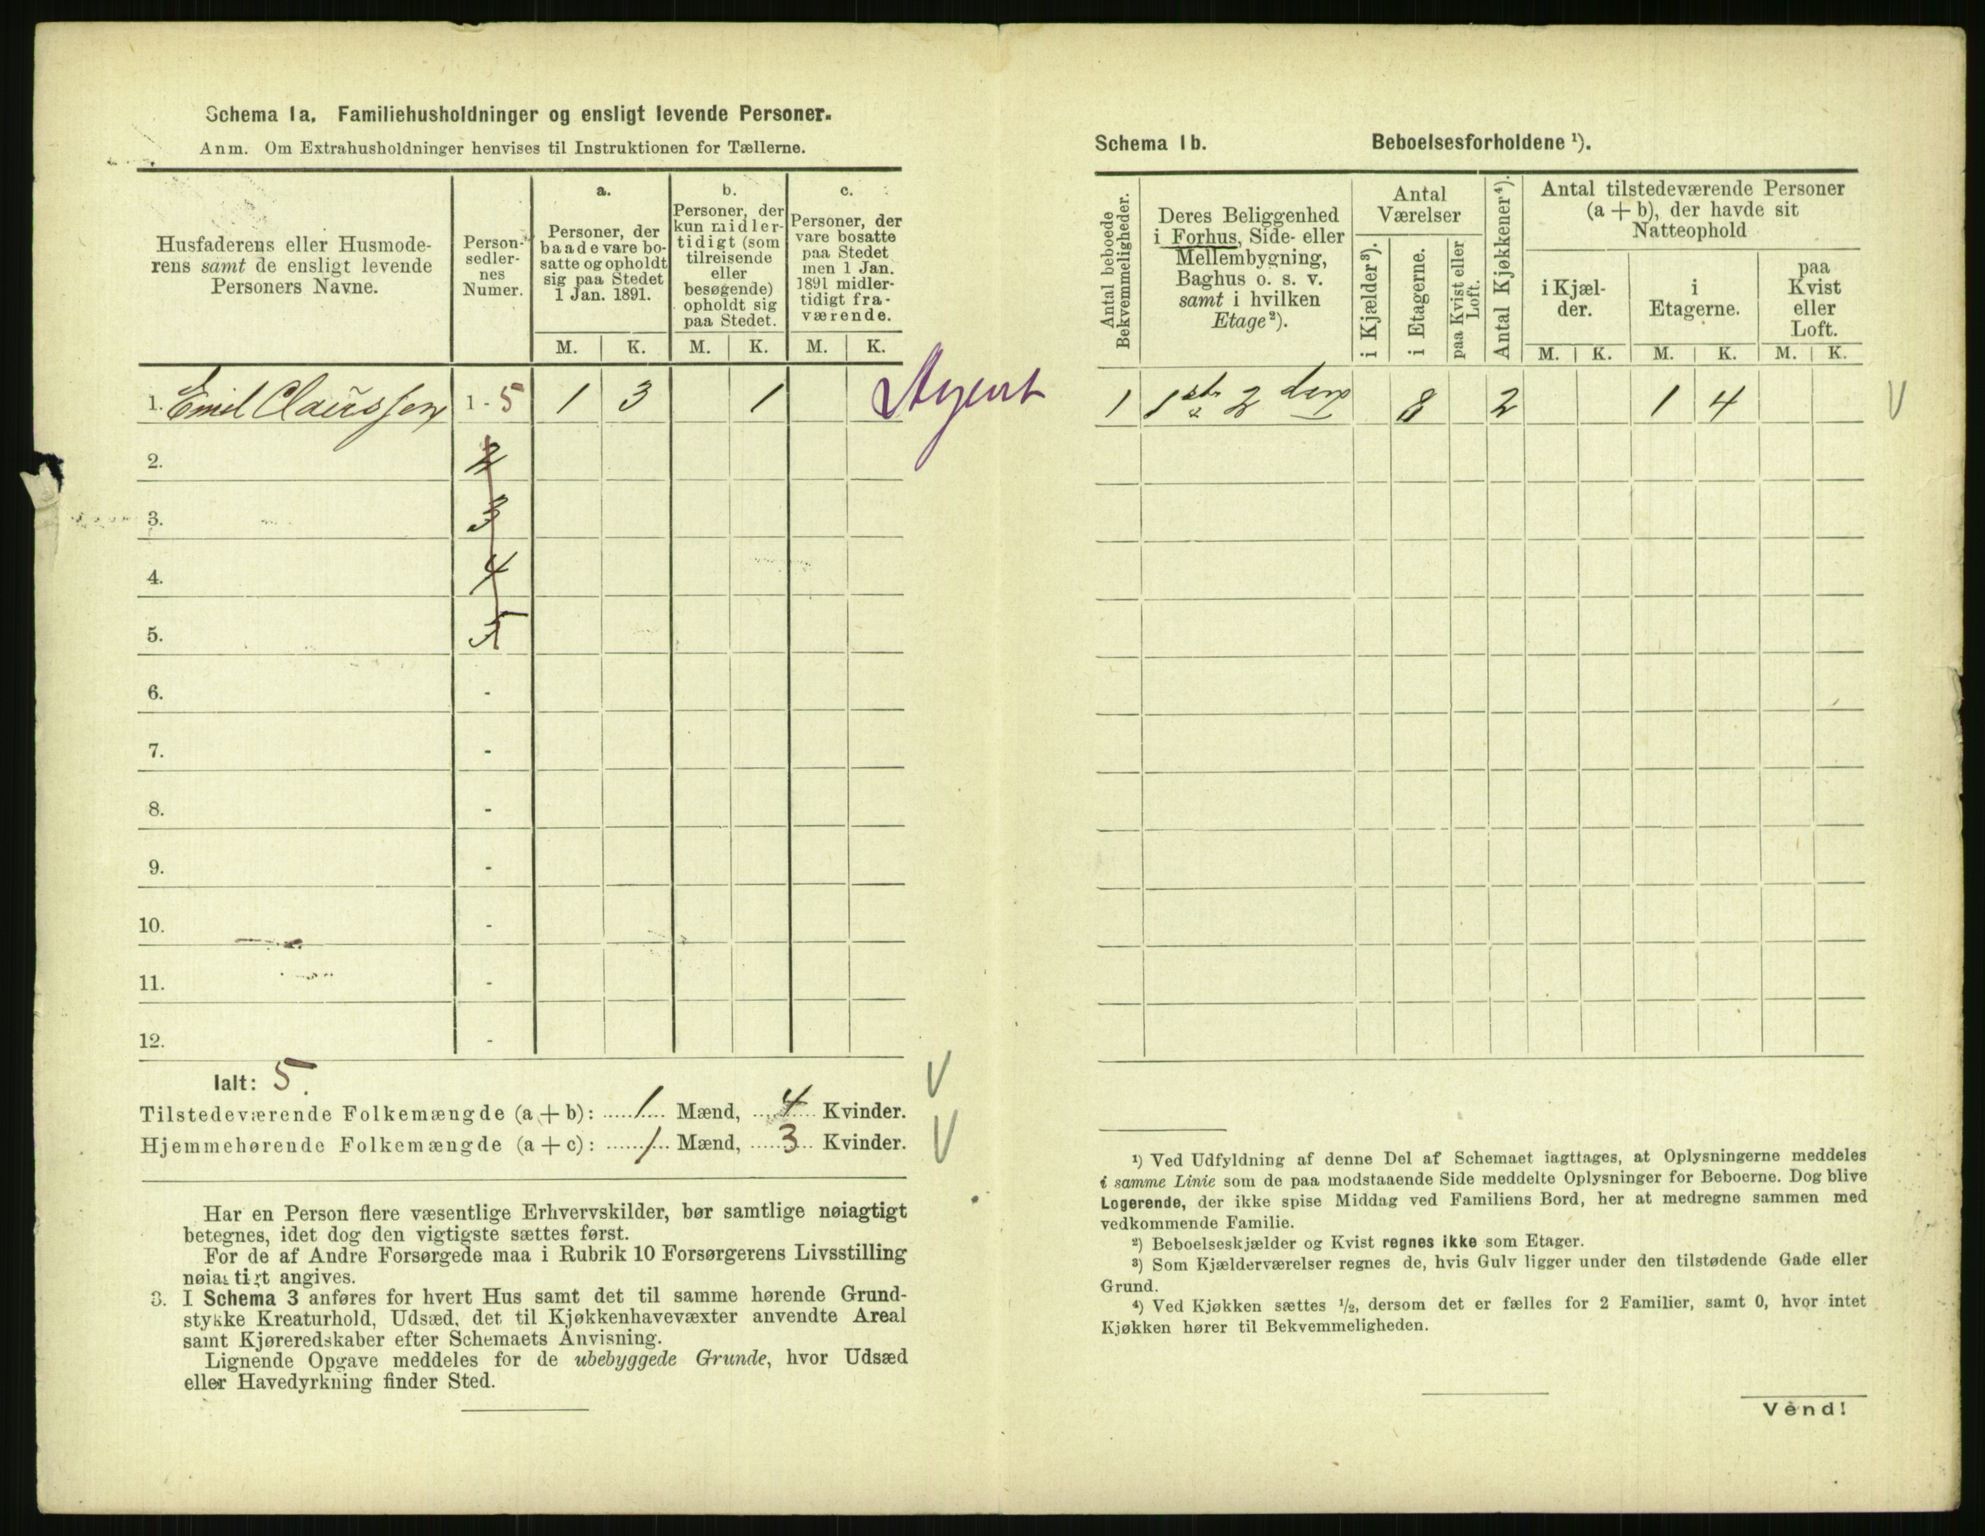 Schema 1a. Familiehusholdninger og ensligt levende Personer.
Anm. Om Extrahusholdninger henvises til Instruktionen for Tællerne.
Husfaderens eller Husmode-
rens samt de ensligt levende
Personers Navne.
Person-
sedler-
nes
Numer.
a.
Personer, der
baade vare bo-
satte og opholdt
sig paa Stedet
1 Jan. 1891.
b.
Personer, der
kun midler-
tidigt (som
tilreisende
eller
besøgende)
opholdt sig
paa Stedet.
c.
Personer, der
vare bosatte
paa Stedet
men 1 Jan.
1891 midler-
tidigt fra-
værende.
M. K. M. K. M. K.
1. Emil Claussen 1 - 5 1 3 1 Agent
2. 2
3. 3
4. 4
5. 5
6. -
7. -
8. -
9. -
10. -
11. -
12. -
Ialt: 5.
Tilstedeværende Folkemængde (a + b): 1 Mænd, 4 Kvinder.
Hjemmehørende Folkemængde (a + c): 1 Mænd, 3 Kvinder.
Har en Person flere væsentlige Erhvervskilder, bør samtlige nøiagtigt
betegnes, idet dog den vigtigste sættes først.
For de af Andre Forsørgede maa i Rubrik 10 Forsørgerens Livsstilling
nøiagtigt angives.
3. I Schema 3 anføres for hvert Hus samt det til samme hørende Grund-
stykke Kreaturhold, Udsæd, det til Kjøkkenhavevæxter anvendte Areal
samt Kjøreredskaber efter Schemaets Anvisning.
Lignende Opgave meddeles for de ubebyggede Grunde, hvor Udsæd
eller Havedyrkning finder Sted.
Schema 1b. Beboelsesforholdene ¹).
Antal beboede
Bekvemmeligheder.
Deres Beliggenhed
i Forhus, Side- eller
Mellembygning,
Baghus o. s. v.
samt i hvilken
Etage²).
Antal
Værelser
i Kjælder³).
i Etagerne.
paa Kvist eller
Loft.
Antal Kjøkkener⁴).
Antal tilstedeværende Personer
(a + b), der havde sit
Natteophold
i Kjæl-
der.
i
Etagerne.
paa
Kvist
eller
Loft.
M. K. M. K. M. K.
1 1ste & 2 den 8 2 1 4
¹) Ved Udfyldning af denne Del af Schemaet iagttages, at Oplysningerne meddeles
i samme Linie som de paa modstaaende Side meddelte Oplysninger for Beboerne. Dog blive
Logerende, der ikke spise Middag ved Familiens Bord, her at medregne sammen med
vedkommende Familie.
²) Beboelseskjælder og Kvist regnes ikke som Etager.
³) Som Kjælderværelser regnes de, hvis Gulv ligger under den tilstødende Gade eller
Grund.
⁴) Ved Kjøkken sættes ½, dersom det er fælles for 2 Familier, samt 0, hvor intet
Kjøkken hører til Bekvemmeligheden.
Vend!